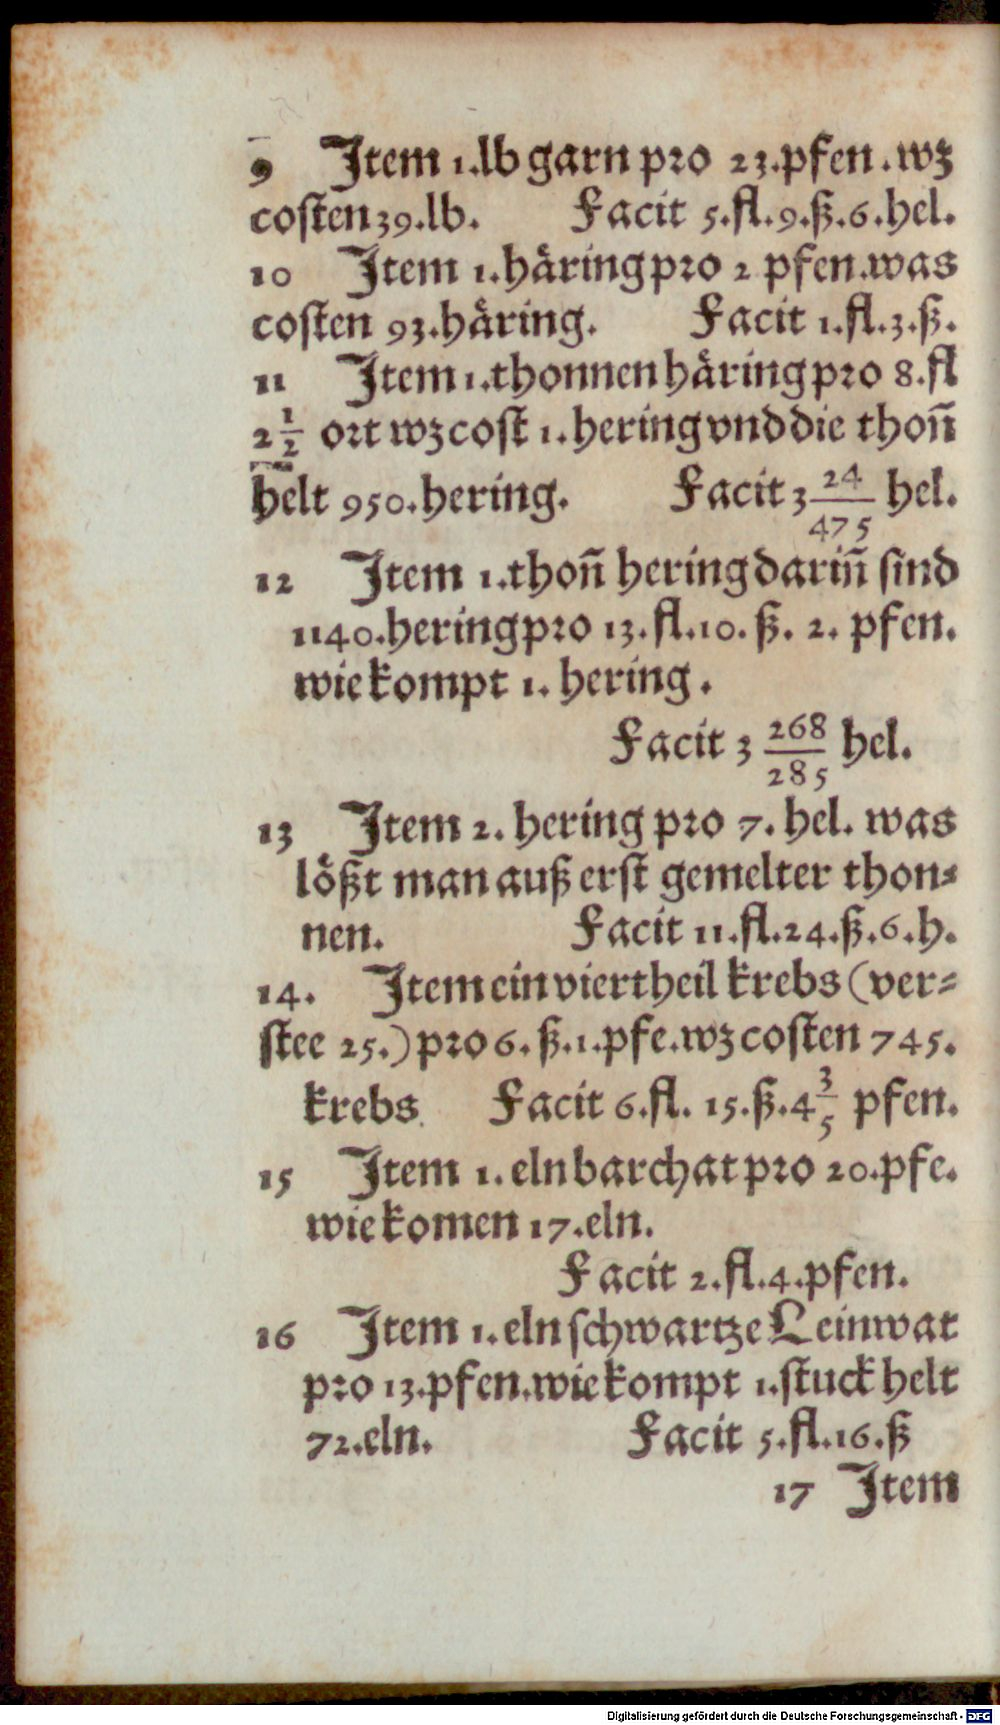 9 Jtem 1.lb garn pro 23.pfen.wz
costen 39.lb. Facit 5.fl.9.ß.6.hel.
10 Jtem 1.håring pro 2 pfen.was
costen 93.håring. Facit 1.fl.3.ß.
11 Jtem 1.thonnen håring pro 8.fl
2 1/2 ort wz cost 1.hering vnd die thon̄
helt 950.hering. Facit 3 24/475 hel.
12 Jtem 1.thon̄ hering darin̄ sind
1140.hering pro 13.fl.10.ß.2.pfen.
wie kompt 1.hering.
Facit 3 268/285 hel.
13 Jtem 2.hering pro 7.hel.was
lößt man auß erst gemelter thon⸗
nen. Facit 11.fl.24.ß.6.h.
14. Jtem ein viertheil krebs (ver⸗
stee 25.) pro 6.ß.1.pfe.wz costen 745.
krebs. Facit 6.fl.15.ß.4 3/5 pfen.
15 Jtem 1.eln barchat pro 20.pfe.
wie komen 17.eln.
Facit 2.fl.4.pfen.
16 Jtem 1.eln schwartze Leinwat
pro 13.pfen.wie kompt 1.stuck helt
72.eln. Facit 5.fl.16.ß
17 Jtem
Digitalisierung gefördert durch die Deutsche Forschungsgemeinschaft - DFG